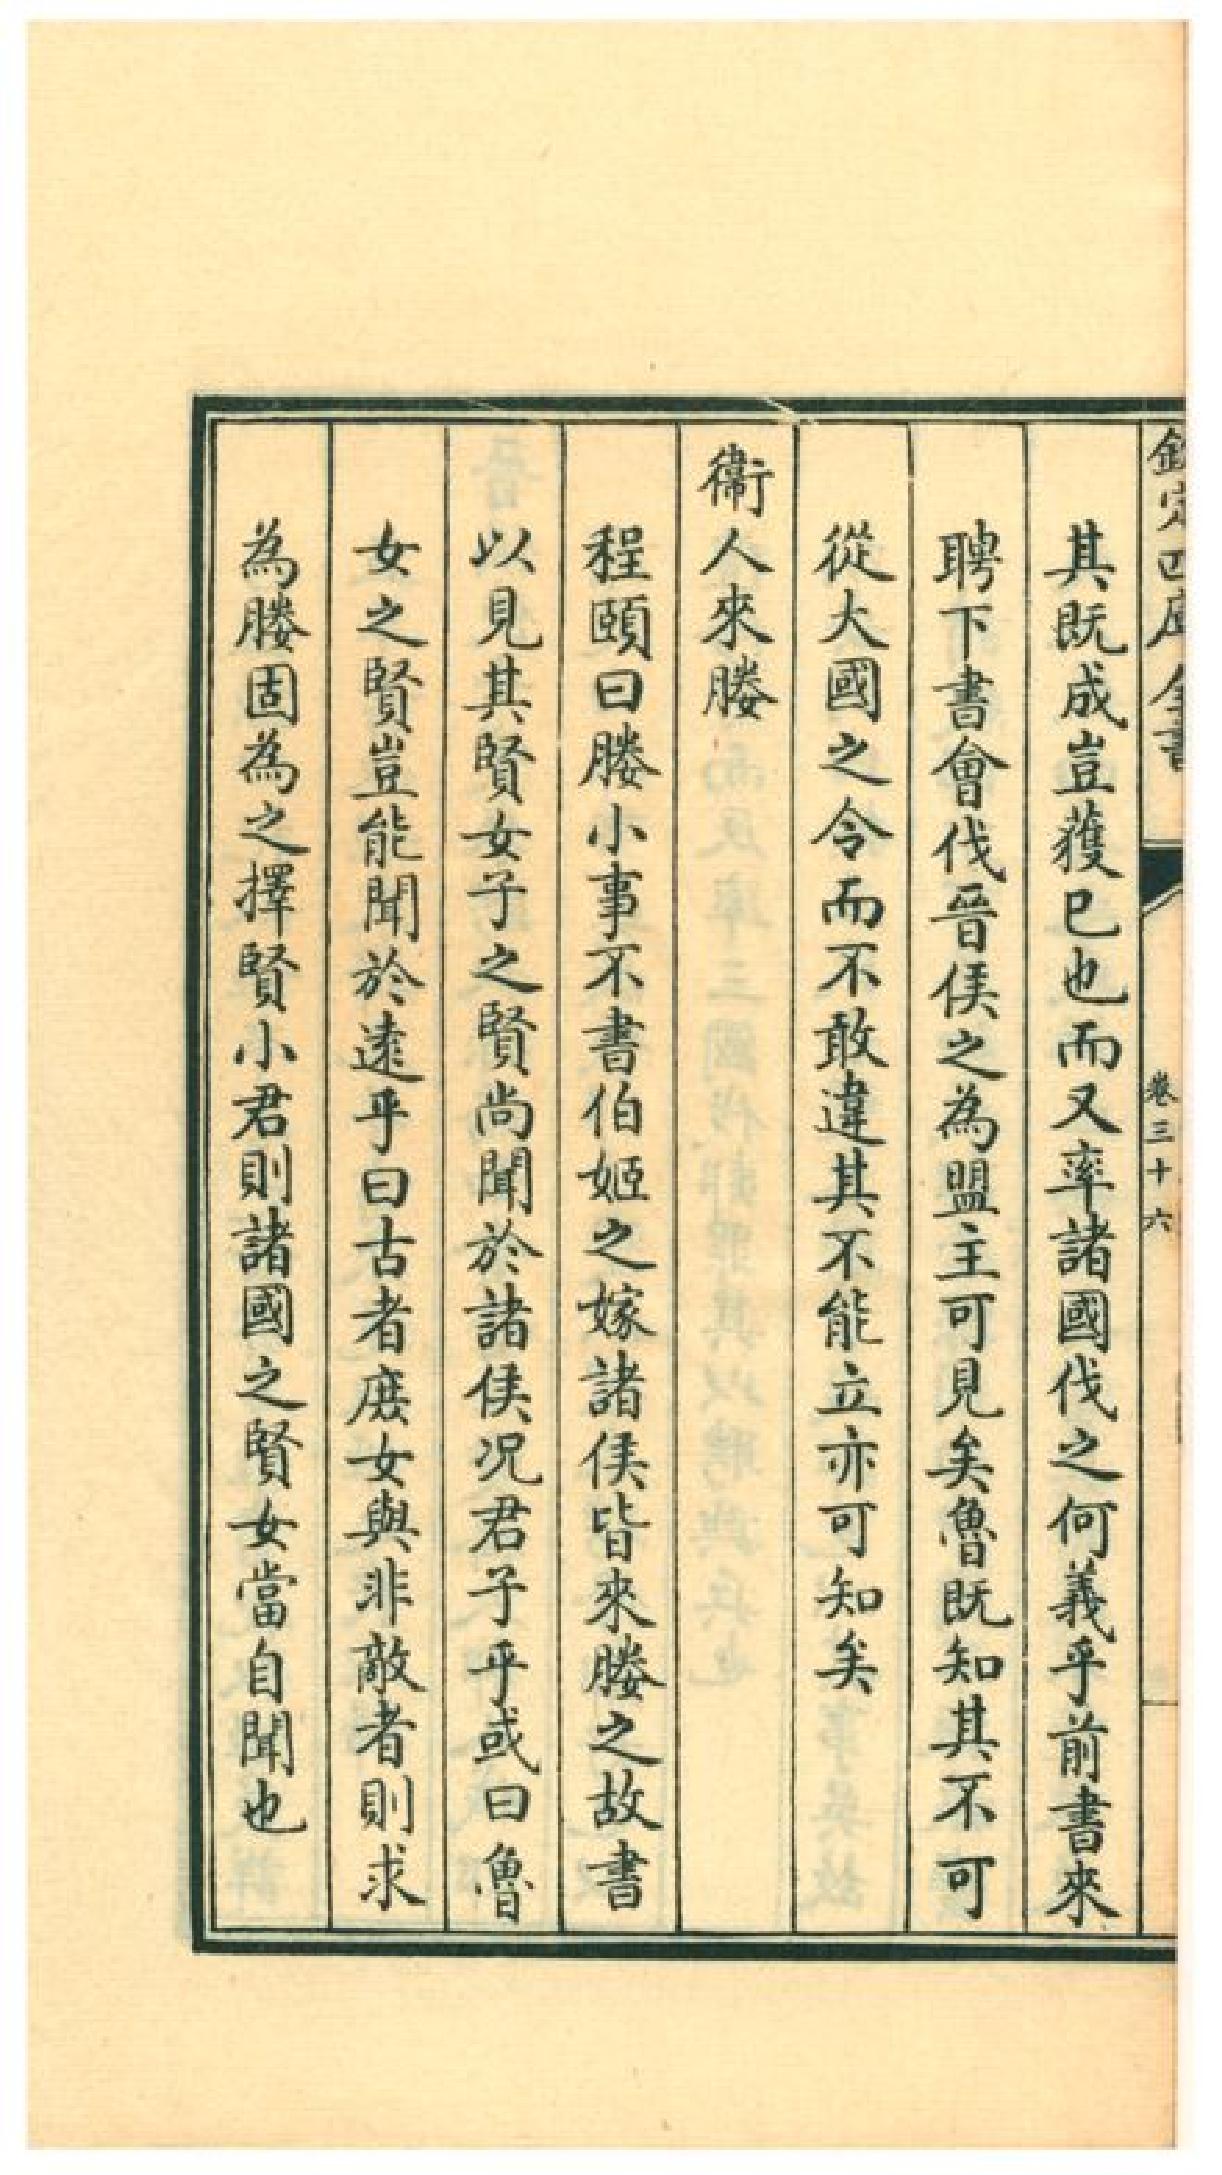 欽定四庫全書
卷三十六
其既成豈獲已也而又率諸國伐之何義乎前書來
聘下書會伐晉侯之為盟主可見矣魯既知其不可
從大國之令而不敢違其不能立亦可知矣
衞人來媵
程頤曰媵小事不書伯姬之嫁諸侯皆來媵之故書
以見其賢女子之賢尚聞於諸侯况君子乎或曰魯
女之賢豈能聞於逺乎曰古者庻女與非敵者則求
為媵固為之擇賢小君則諸國之賢女當自聞也